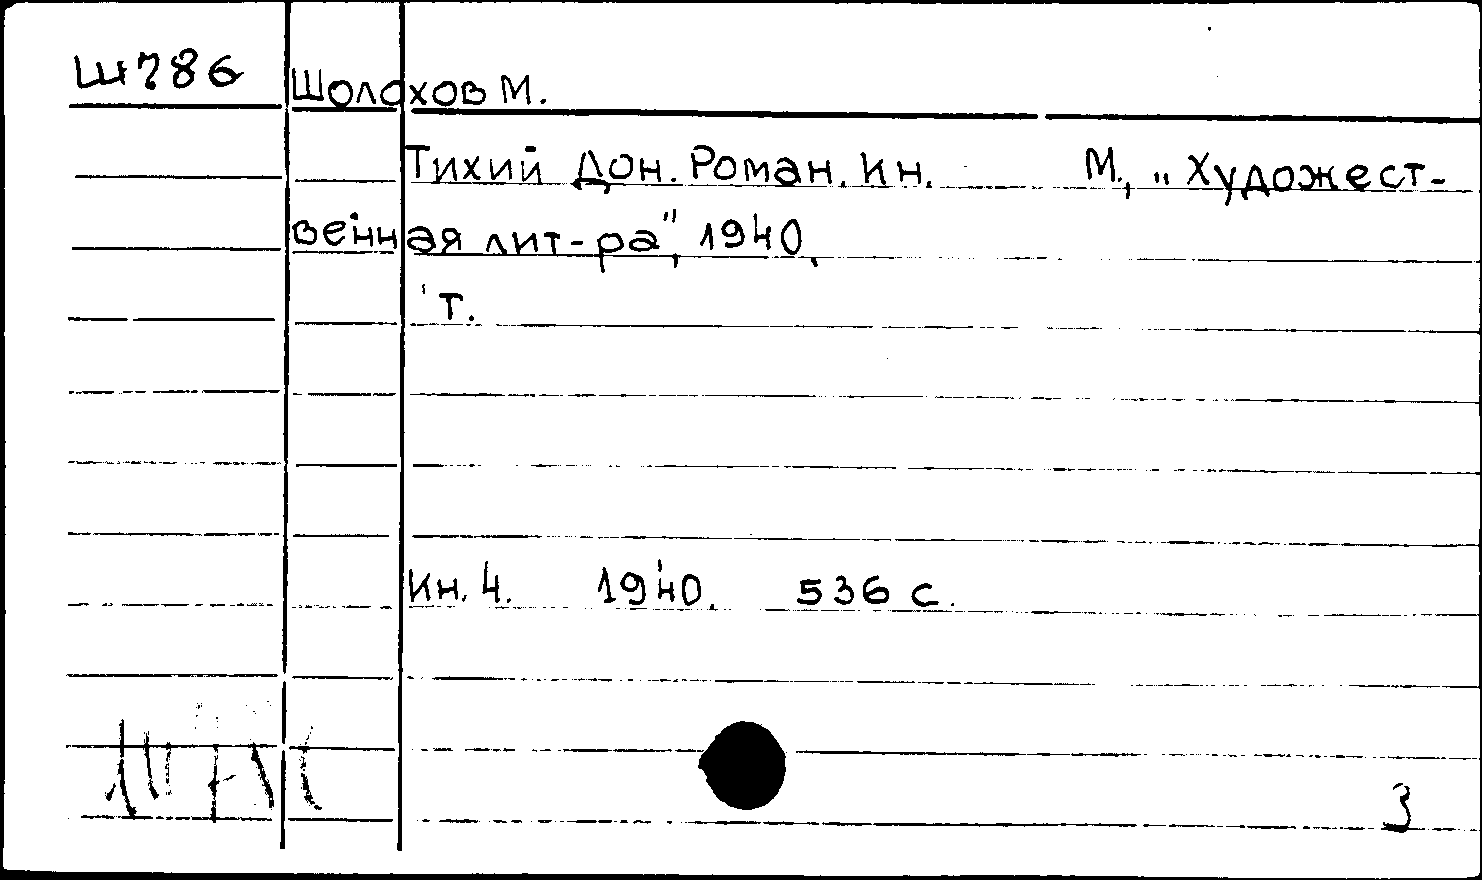 Ш786
Шолохов М.
Тихий Дон. Роман. Кн. М., „Художест-
венная лит-ра", 1940.
т.
Кн. 4. 1940. 536 с.
3